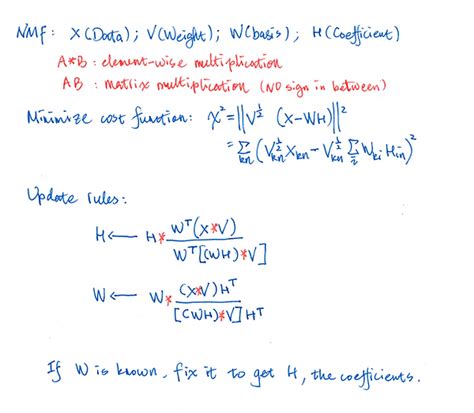 NMF: X(Data); V(Weight); W(basis); H(Coefficient)
A*B: element-wise multiplication
AB: matrix multiplication (NO sign in between)
Minimize cost function: χ² = ||V^{1/2} (X-WH)||²
= Σ_{kn} (V_{kn}^{1/2} X_{kn} - V_{kn}^{1/2} Σ_i W_{ki} H_{in})²
Update rules:
H ← H * W^T(X*V) / W^T[(WH)*V]
W ← W * (X*V)H^T / [(WH)*V]H^T
If W is known, fix it to get H, the coefficients.